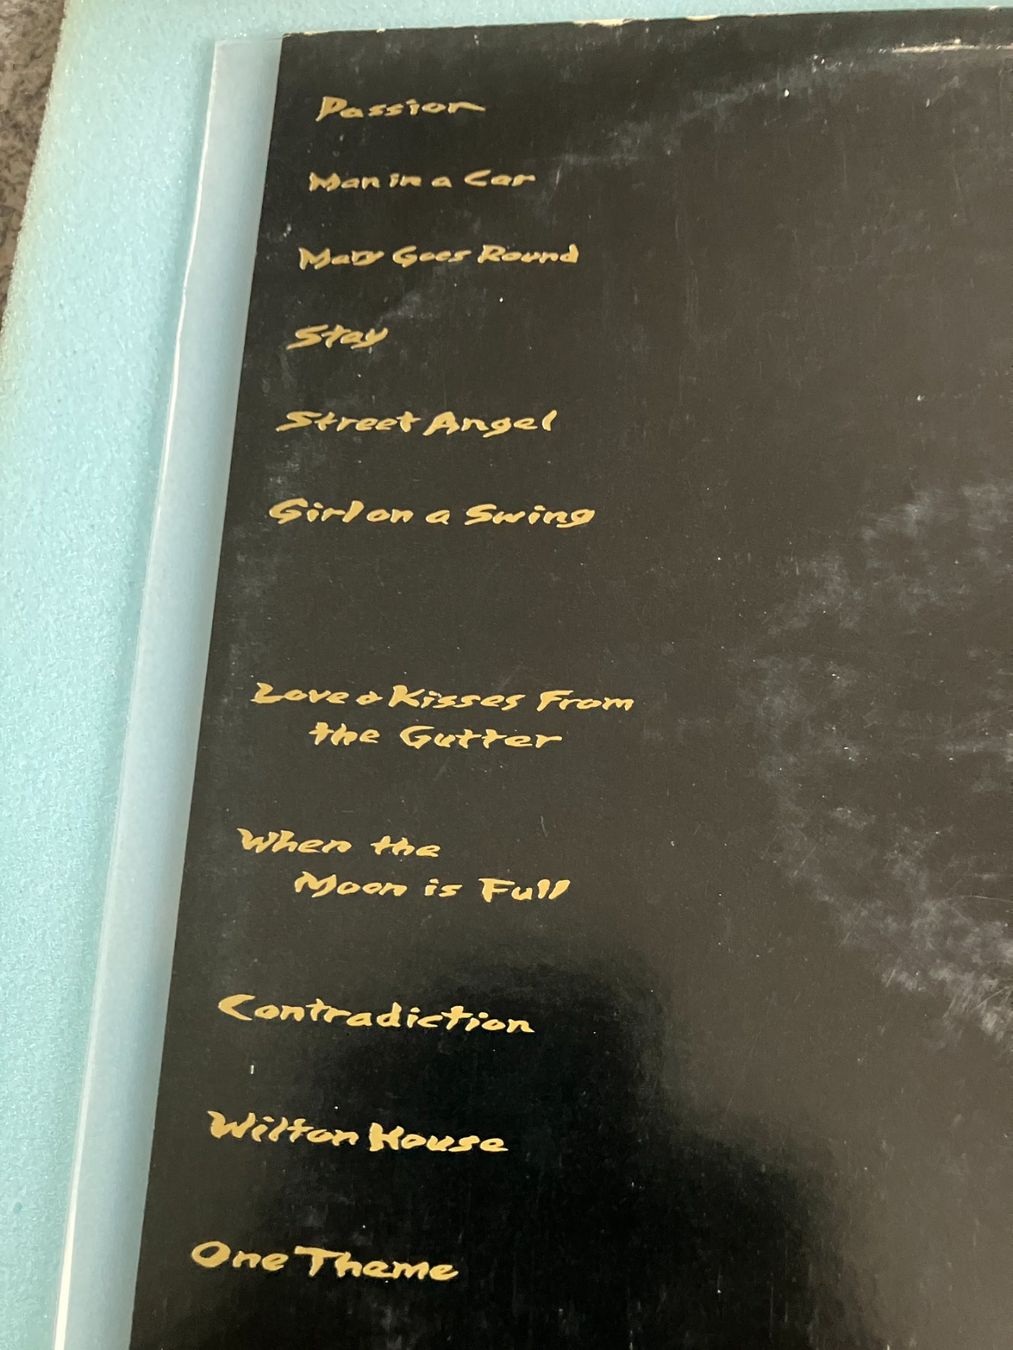 Passion
Man in a Car
Mary Goes Round
Stay
Street Angel
Girl on a Swing
Love & Kisses From
the Gutter
When the
Moon is Full
Contradiction
Wilton House
One Theme